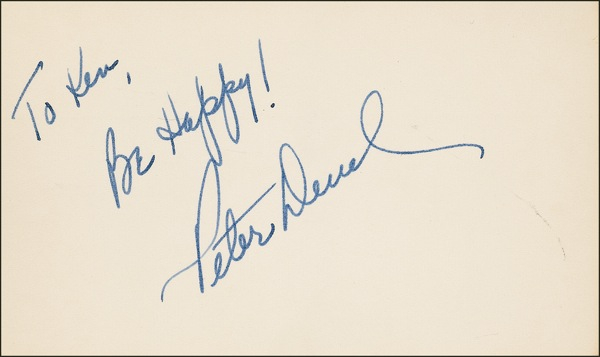 To Ken,
Be Happy!
Peter Deuel